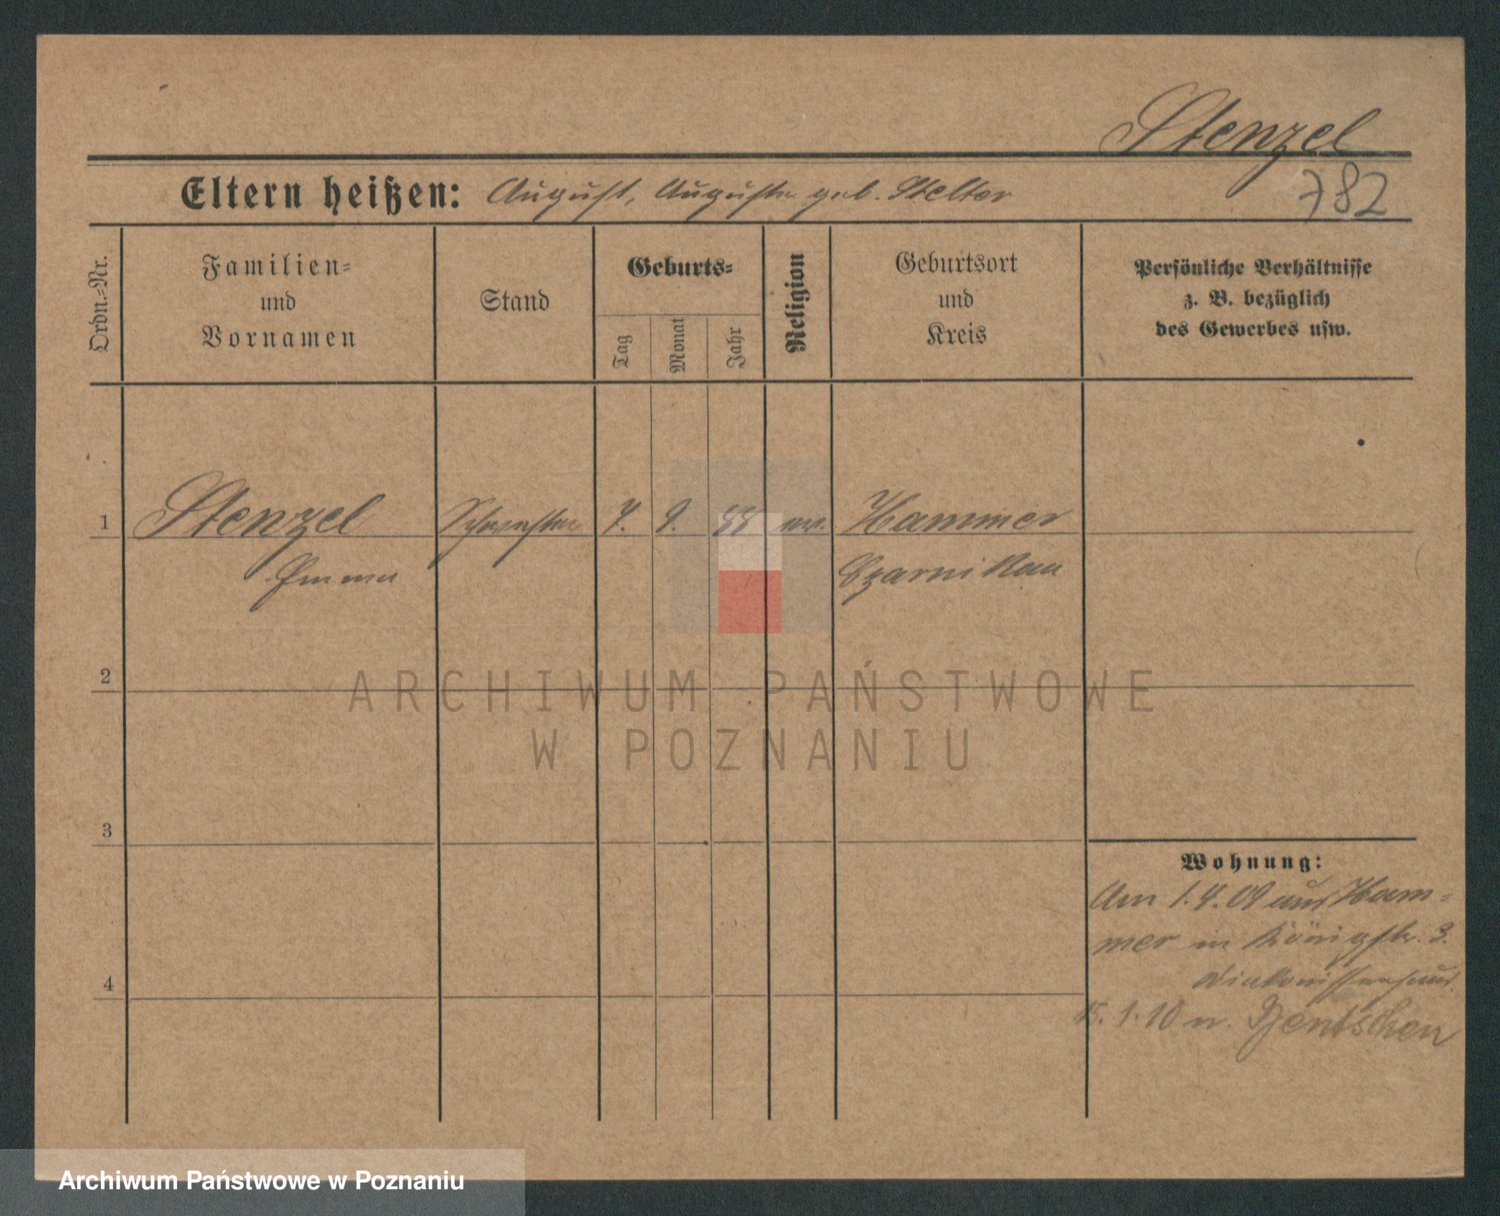 Stenzel
Eltern heißen: August, Auguste geb. Stelter
782
Ordn.-Nr.
Familien-
und
Vornamen
Stand
Geburts-
Tag
Monat
Jahr
Religion
Geburtsort
und
Kreis
Persönliche Verhältnisse
z. B. bezüglich
des Gewerbes usw.
1 Stenzel Schwester 7. 9. 88 ev. Hammer
Emma Czarnikau
2
ARCHIWUM PAŃSTWOWE
W POZNANIU
3
Wohnung:
Am 1.4.09 aus Ham-
mer in Königstr. 3.
Diakonissenhaus
15.1.10 n. Bentschen
4
Archiwum Państwowe w Poznaniu